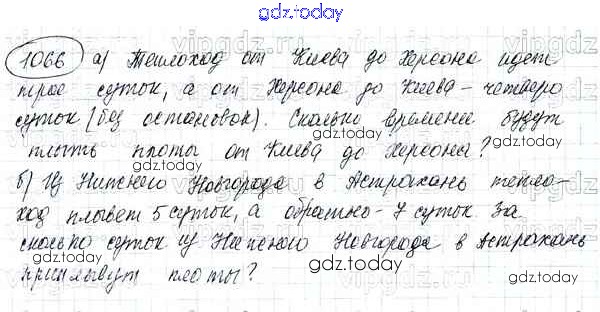 gdz.today
1066 а) Теплоход от Киева до Херсона идет
трое суток, а от Херсона до Киева - четверо
gdz.today
суток (без остановок). Сколько времени будут
gdz.today
плыть плоты от Киева до Херсона?
gdz.today
б) Из Нижнего Новгорода в Астрахань тепло-
ход плывет 5 суток, а обратно - 7 суток. За
gdz.today
сколько суток из Нижнего Новгорода в Астрахань
gdz.today
приплывут плоты?
gdz.today